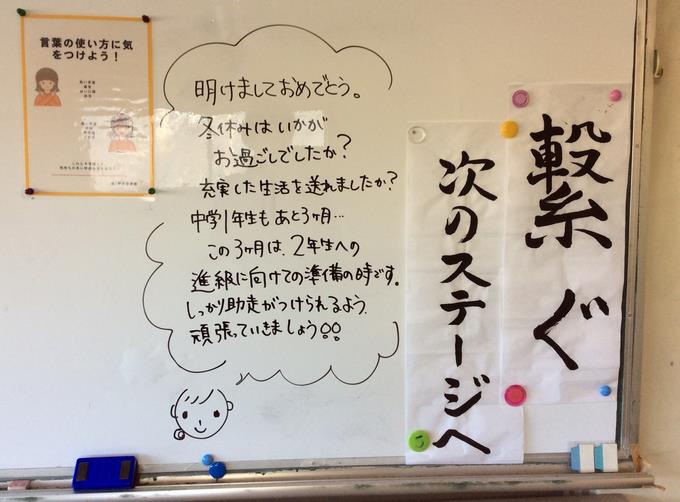 言葉の使い方に気
をつけよう！
明けましておめでとう。
冬休みはいかが
お過ごしでしたか？
充実した生活を送れましたか？
中学1年生もあと3ヶ月…
この3ヶ月は、2年生への
進級に向けての準備の時です。
しっかり助走がつけられるよう、
頑張っていきましょう!!
繋ぐ
次のステージへ